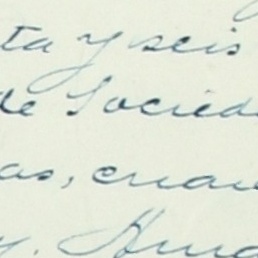 ta y seis
de Socied
as, cuan
y.